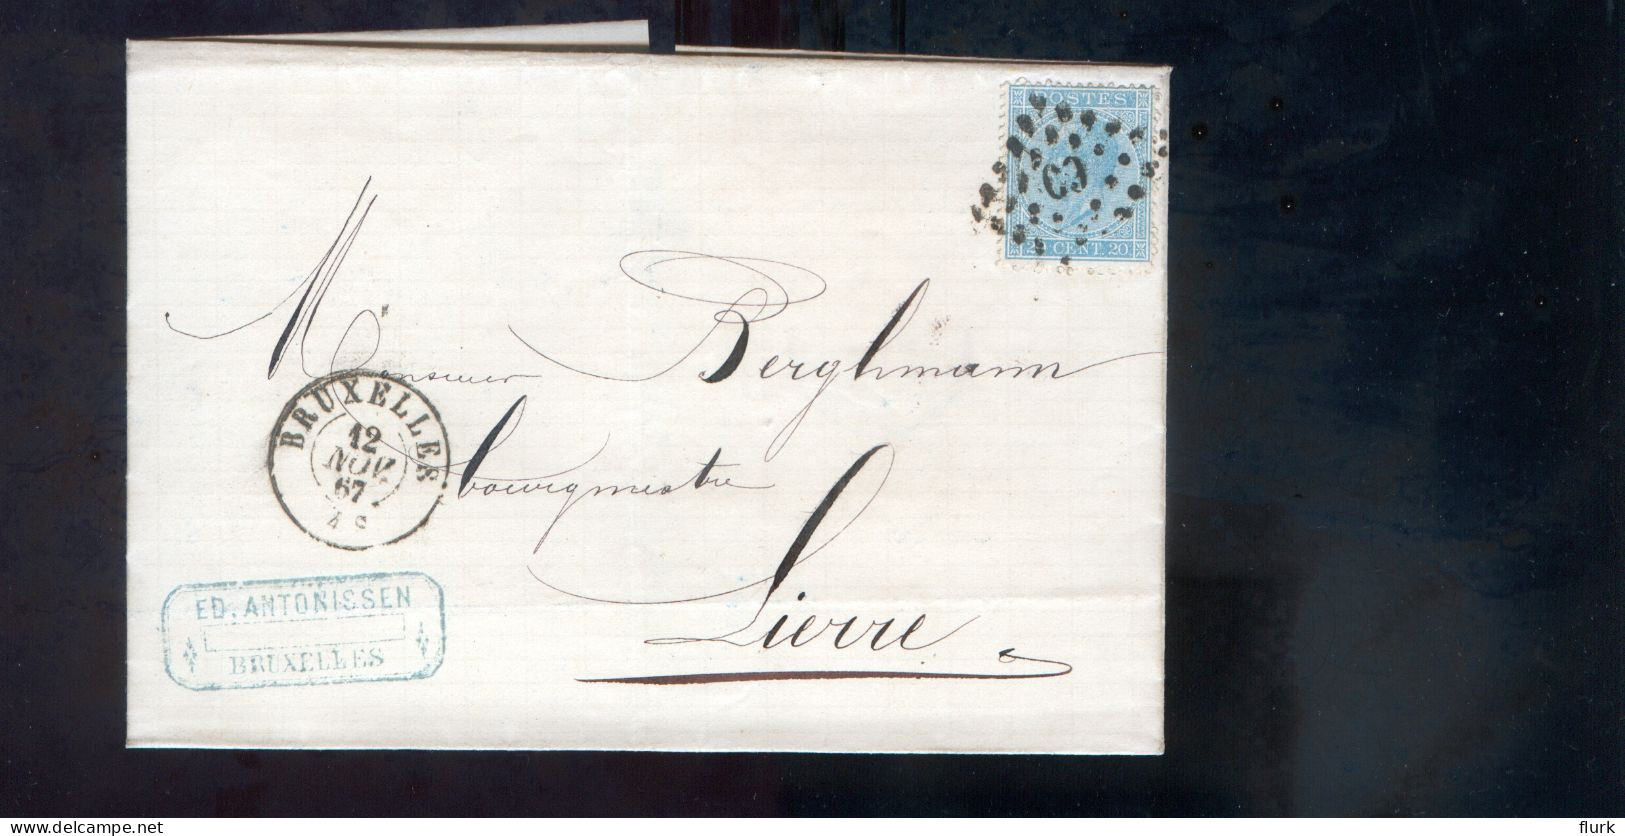 POSTES
60
20 CENT. 20
Monsieur Berghmann
bourgmestre
Lierre
BRUXELLES
12
NOV
67
4 S
ED. ANTONISSEN
BRUXELLES
delcampe.net
flurk